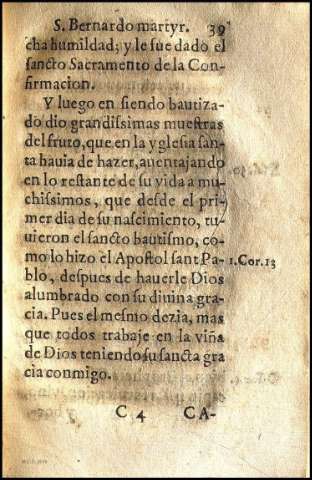 S. Bernardo martyr. 39
cha humildad; y le fue dado el
sancto Sacramento de la Con-
firmacion.
Y luego en siendo bautiza-
do dio grandissimas muestras
del fruto, que en la yglesia san-
ta hauia de hazer, auentajando
en lo restante de su vida a mu-
chissimos, que desde el pri-
mer dia de su nascimiento, tu-
uieron el sancto bautismo, co-
mo lo hizo el Apostol sant Pa- 1.Cor.13
blo, despues de hauerle Dios
alumbrado con su diuina gra-
cia. Pues el mesmo dezia, mas
que todos trabaje en la viña
de Dios teniendo su sancta gra
cia conmigo.
C 4 CA-